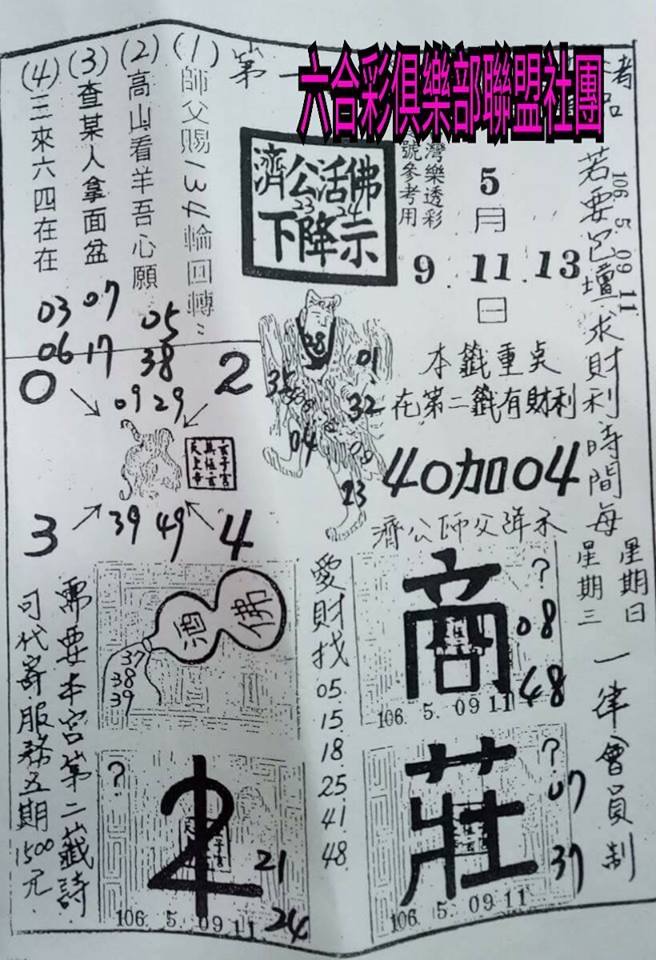 六合彩俱樂部聯盟社團
第一
(1)師父賜134輪回轉
(2)高山看羊吾心願
(3)查某人拿面盆
(4)三來六四在在
濟公活佛
23 24
下降示
灣樂透彩
號參考用
5
月
9 . 11 . 13
日
106 5 09 11
若要己壇求財利時間每
星期日
星期三
一律會員制
03 07 05
06 17 38
0 2
09 29
39 49
3 4
38
01
35
32
04
23
本籤重点
在第二籤有財利
40加04
濟公師父詳示
酒 佛
37
38
39
愛財找
05
15
18
25
41
48
商
?
08
48
106. 5. 09 11
?
21
24
106 5. 09 11
莊
?
07
37
106. 5. 09 11
需要本宮第二籤詩
可代寄服務五期1500元